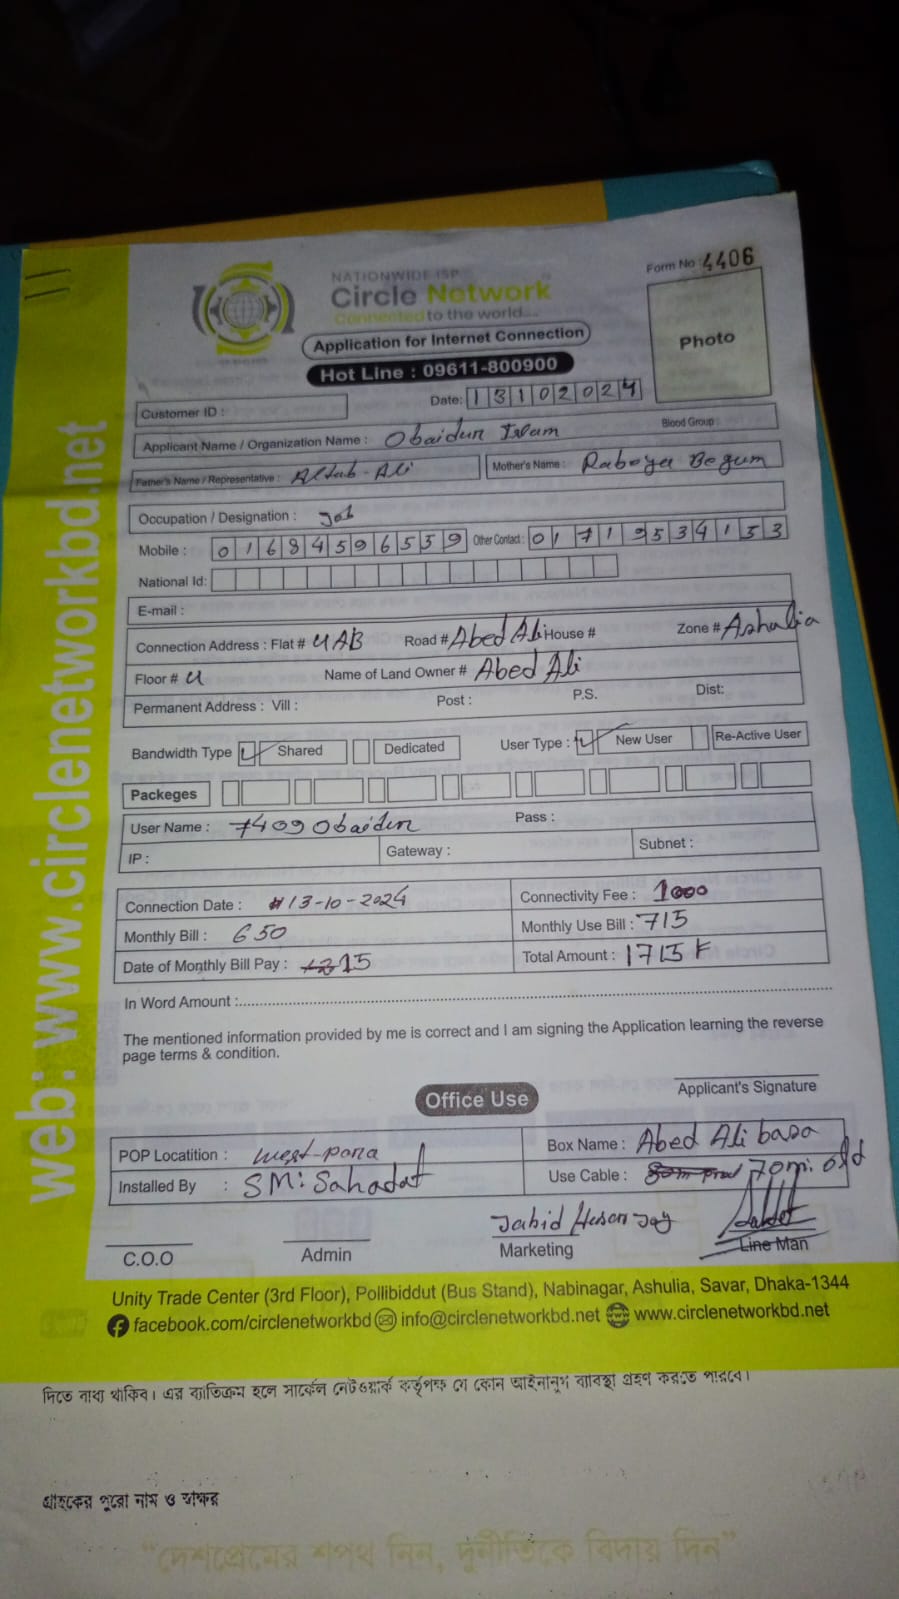 NATIONWIDE ISP
Circle Network
Connected to the world...
Form No : 4406
Photo
Application for Internet Connection
Hot Line : 09611-800900
Date: 13102024
Customer ID :
Applicant Name / Organization Name : Obaidun Islam Blood Group :
Father's Name / Representative : Altab-Ali Mother's Name : Rabeya Begum
Occupation / Designation : Job
Mobile : 01684596559 Other Contact : 01719534153
National Id:
E-mail :
Connection Address : Flat # 4AB Road # Abed Ali House # Zone # Ashulia
Floor # 4 Name of Land Owner # Abed Ali
Permanent Address : Vill : Post : P.S. Dist:
Bandwidth Type Shared Dedicated User Type : New User Re-Active User
Packeges
User Name : 7409Obaidun Pass :
IP : Gateway : Subnet :
Connection Date : 13-10-2024 Connectivity Fee : 1000
Monthly Bill : 650 Monthly Use Bill : 715
Date of Monthly Bill Pay : 15 Total Amount : 1715
In Word Amount :
The mentioned information provided by me is correct and I am signing the Application learning the reverse
page terms & condition.
Applicant's Signature
Office Use
POP Locatition : west-para Box Name : Abed Ali basa
Installed By : SM: Sahadat Use Cable : 70mi. old
Jahid Hasan Joy
C.O.O Admin Marketing Line Man
Unity Trade Center (3rd Floor), Pollibiddut (Bus Stand), Nabinagar, Ashulia, Savar, Dhaka-1344
facebook.com/circlenetworkbd info@circlenetworkbd.net www.circlenetworkbd.net
web: www.circlenetworkbd.net
দিতে বাধ্য থাকিব। এর ব্যতিক্রম হলে সার্কেল নেটওয়ার্ক কর্তৃপক্ষ যে কোন আইনানুগ ব্যবস্থা গ্রহণ করতে পারবে।
গ্রাহকের পুরো নাম ও স্বাক্ষর
“দেশপ্রেমের শপথ নিন, দুর্নীতিকে বিদায় দিন”